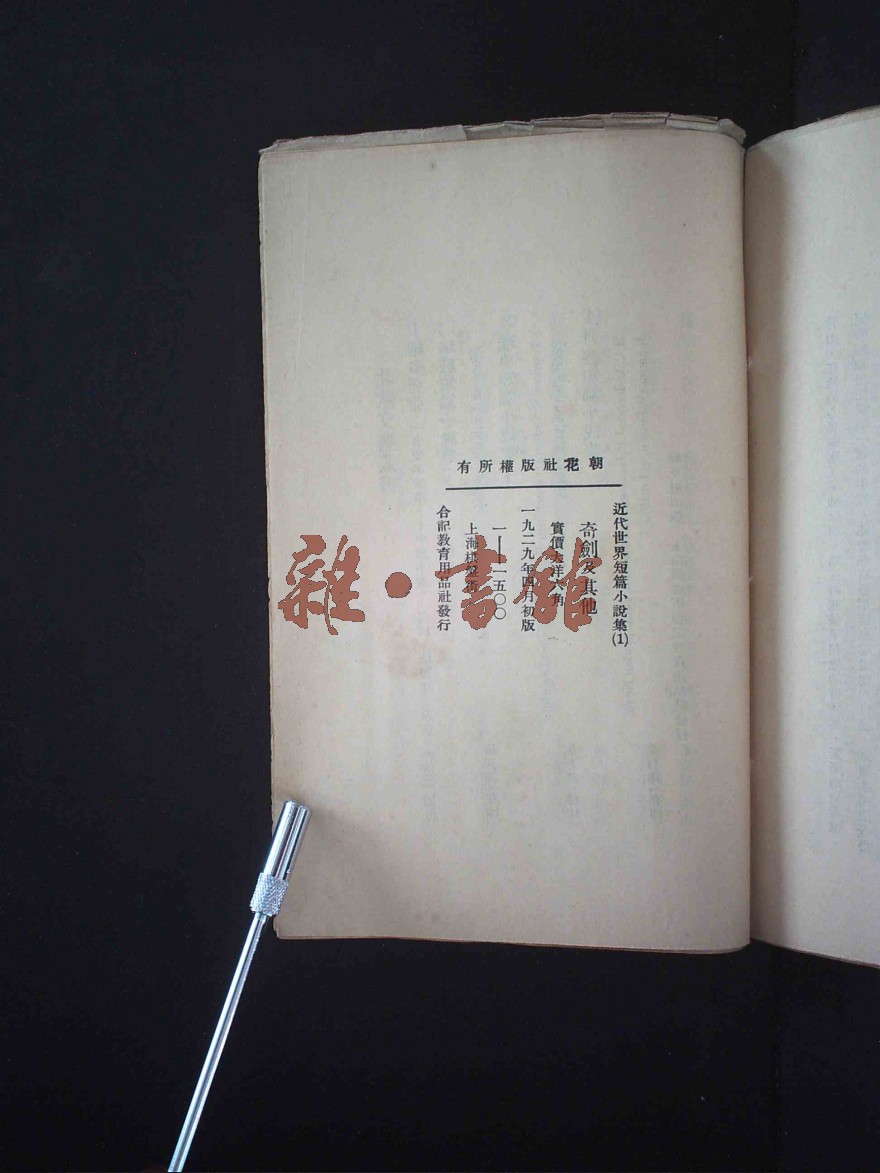 朝花社版權所有
近代世界短篇小說集(1)
奇劍及其他
實價大洋六角
一九二九年四月初版
一——一五〇〇
上海棋盤街
合記教育用品社發行
雜·書館